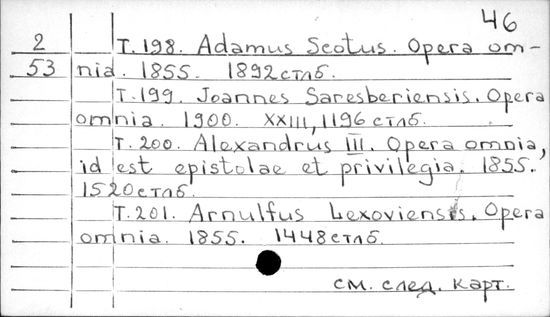 46
2 Т.198. Adamus Scotus. Opera om-
53 nia. 1855. 1892стлб.
Т.199. Joannes Saresberiensis. Opera
omnia. 1900. XXIII, 1196 стлб.
Т.200. Alexandrus III. Opera omnia,
id est epistolae et privilegia. 1855.
1520стлб.
Т.201. Arnulfus Lexoviensis. Opera
omnia. 1855. 1448стлб.
см. след. карт.